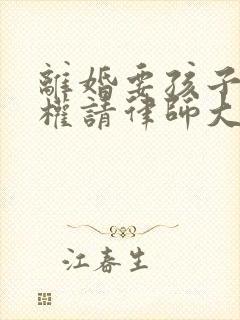 離婚要孩子
權請律師大
江春生